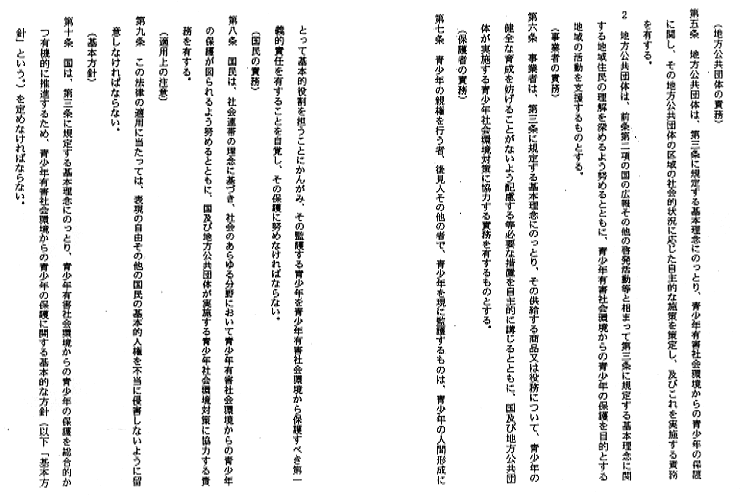 （地方公共団体の責務）
第五条　地方公共団体は、第三条に規定する基本理念にのっとり、青少年有害社会環境からの青少年の保護
に関し、その地方公共団体の区域の社会的状況に応じた自主的な施策を策定し、及びこれを実施する責務
を有する。
２　地方公共団体は、前条第二項の国の広報その他の啓発活動等と相まって第三条に規定する基本理念に関
する地域住民の理解を深めるよう努めるとともに、青少年有害社会環境からの青少年の保護を目的とする
地域の活動を支援するものとする。
（事業者の責務）
第六条　事業者は、第三条に規定する基本理念にのっとり、その供給する商品又は役務について、青少年の
健全な育成を妨げることがないよう配慮する等必要な措置を自主的に講じるとともに、国及び地方公共団
体が実施する青少年社会環境対策に協力する責務を有するものとする。
（保護者の責務）
第七条　青少年の親権を行う者、後見人その他の者で、青少年を現に監護するものは、青少年の人間形成に
とって基本的役割を担うことにかんがみ、その監護する青少年を青少年有害社会環境から保護すべき第一
義的責任を有することを自覚し、その保護に努めなければならない。
（国民の責務）
第八条　国民は、社会連帯の理念に基づき、社会のあらゆる分野において青少年有害社会環境からの青少年
の保護が図られるよう努めるとともに、国及び地方公共団体が実施する青少年社会環境対策に協力する責
務を有する。
（適用上の注意）
第九条　この法律の適用に当たっては、表現の自由その他の国民の基本的人権を不当に侵害しないように留
意しなければならない。
（基本方針）
第十条　国は、第三条に規定する基本理念にのっとり、青少年有害社会環境からの青少年の保護を総合的か
つ有機的に推進するため、青少年有害社会環境からの青少年の保護に関する基本的な方針（以下「基本方
針」という。）を定めなければならない。